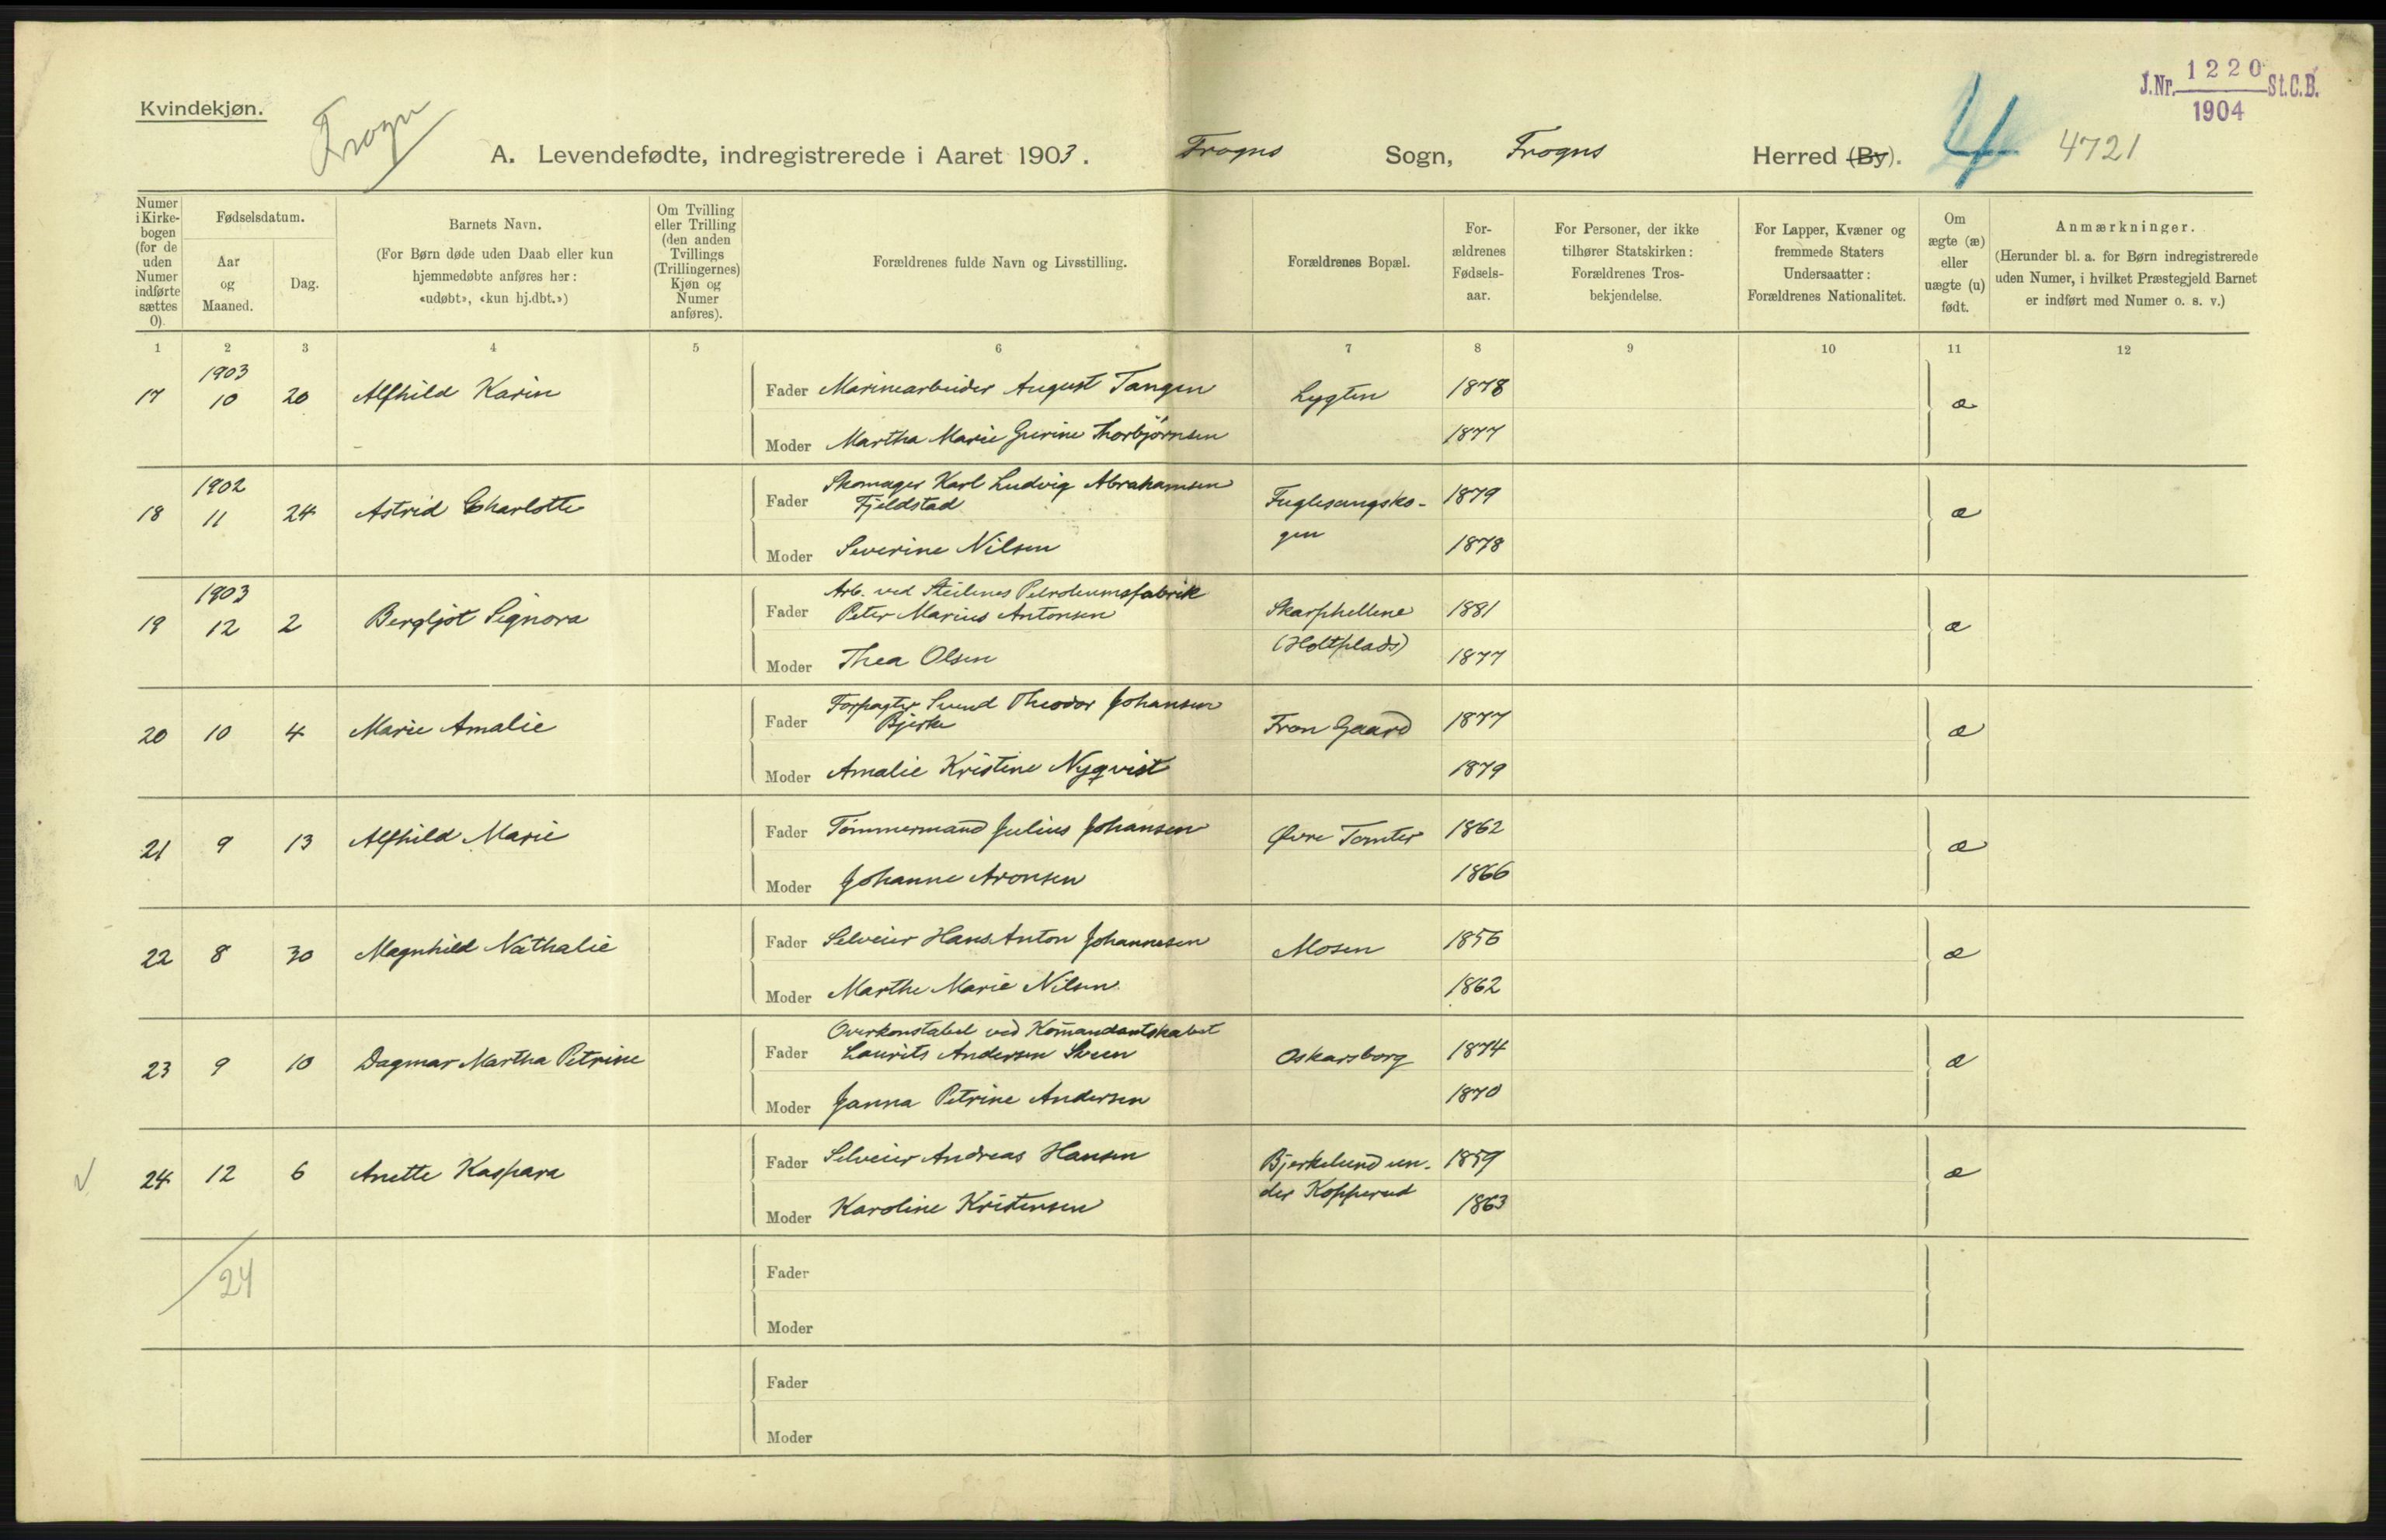 Kvindekjøn.
Frogn
J.Nr. 1220 St.C.B.
1904
A. Levendefødte, indregistrerede i Aaret 1903. Frogns Sogn, Frogns Herred (By). 4 4721
Numer i Kirke-bogen (for de uden Numer indførte sættes 0).
Fødselsdatum.
Aar og Maaned.
Dag.
Barnets Navn.
(For Børn døde uden Daab eller kun
hjemmedøbte anføres her:
«udøbt», «kun hj.dbt.»)
Om Tvilling
eller Trilling
(den anden
Tvillings
(Trillingernes)
Kjøn og
Numer
anføres).
Forældrenes fulde Navn og Livsstilling.
Forældrenes Bopæl.
For-
ældrenes
Fødsels-
aar.
For Personer, der ikke
tilhører Statskirken:
Forældrenes Tros-
bekjendelse.
For Lapper, Kvæner og
fremmede Staters
Undersaatter:
Forældrenes Nationalitet.
Om
ægte (æ)
eller
uægte (u)
født.
Anmærkninger.
(Herunder bl. a. for Børn indregistrerede
uden Numer, i hvilket Præstegjeld Barnet
er indført med Numer o. s. v.)
1 2 3 4 5 6 7 8 9 10 11 12
1903
17 10 20 Alfhild Karin Fader Marinearbeider August Tangen Lygten 1878 æ
Moder Martha Marie Gurine Thorbjørnsen 1877
1902 Skomager Karl Ludvig Abrahamsen
18 11 24 Astrid Charlotte Fader Fjeldstad Fuglesangsko- 1879 æ
Moder Severine Nilsen gen 1878
1903 Arb. ved Steilenes Petroleumsfabrik
19 12 2 Bergljot Signora Fader Peter Marius Antonsen Skarphellene 1881 æ
Moder Thea Olsen (Holtplads) 1877
Forpagter Svend Theodor Johansen
20 10 4 Marie Amalie Fader Bjerke Fron Gaard 1877 æ
Moder Amalie Kristine Nyqvist 1879
21 9 13 Alfhild Marie Fader Tømmermand Julius Johansen Øvre Tomter 1862 æ
Moder Johanne Aronsen 1866
22 8 30 Magnhild Nathalie Fader Selveier Hans Anton Johannesen Mosen 1856 æ
Moder Marthe Marie Nilsen 1862
Overkonstabel ved Komandantskabet
23 9 10 Dagmar Martha Petrine Fader Laurits Andersen Sveen Oskarsborg 1874 æ
Moder Janna Petrine Andersen 1870
24 12 6 Anette Kaspara Fader Selveier Andreas Hansen Bjerkelund un- 1859 æ
Moder Karoline Kristensen der Kopperud 1863
24 Fader
Moder
Fader
Moder